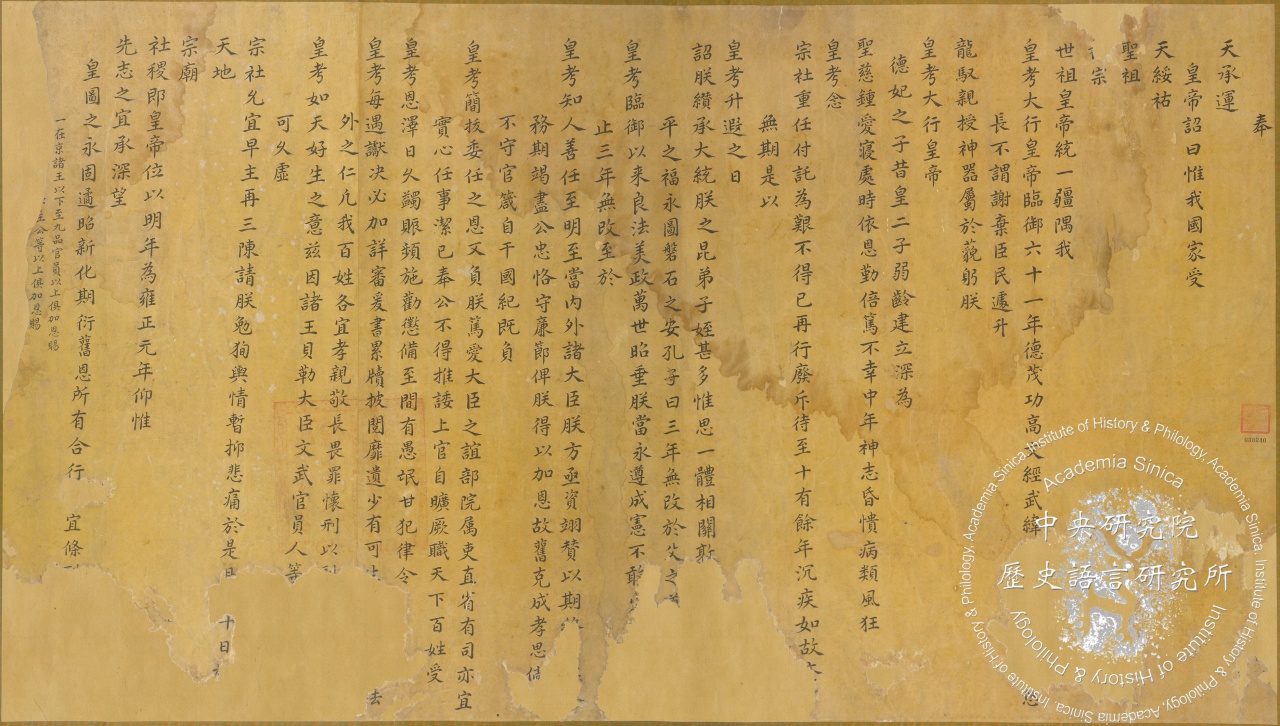 奉
天承運
皇帝詔曰惟我國家受
天綏祐
聖祖
宗
世祖皇帝統一疆隅我
皇考大行皇帝臨御六十一年德茂功高文經武緯
長不謂謝棄臣民遽升
龍馭親授神器屬於藐躬朕
皇考大行皇帝
德妃之子昔皇二子弱齡建立深為
聖慈鍾愛寢處時依恩勤倍篤不幸中年神志昏憒病類風狂
皇考念
宗社重任付託為艱不得已再行廢斥待至十有餘年沉疾如故
無期是以
皇考升遐之日
詔朕纘承大統朕之昆弟子姪甚多惟思一體相關敦
平之福永圖磐石之安孔子曰三年無改於父之
皇考臨御以来良法美政萬世昭垂朕當永遵成憲不敢
止三年無改至於
皇考知人善任至明至當內外諸大臣朕方亟資翊贊以期
務期竭盡公忠恪守廉節俾朕得以加恩故舊克成孝思倘
不守官箴自干國紀既負
皇考簡拔委任之恩又負朕篤愛大臣之誼部院屬吏直省有司亦宜
實心任事潔已奉公不得推諉上官自曠厥職天下百姓受
皇考恩澤日久蠲賑頻施勸懲備至間有愚氓甘犯律令
皇考每遇讞決必加詳審爰書累牘披閱靡遺少有可
去
外之仁凡我百姓各宜孝親敬長畏罪懷刑以
皇考如天好生之意茲因諸王貝勒大臣文武官員人等
可久虛
宗社允宜早主再三陳請朕勉狥輿情暫抑悲痛於是
十日
天地
宗廟
社稷即皇帝位以明年為雍正元年仰惟
先志之宜承深望
皇圖之永固遹昭新化期衍舊恩所有合行 宜條
一在京諸王以下至九品官員以上俱加恩賜
公等以上俱加恩賜
中央研究院
歷史語言研究所
Academia Sinica
Institute of History & Philology
Institute of History & Philology, Academia Sinica, Institute of History & Philology, Academia Sinica, Institute of History & Philology, Academia Sinica